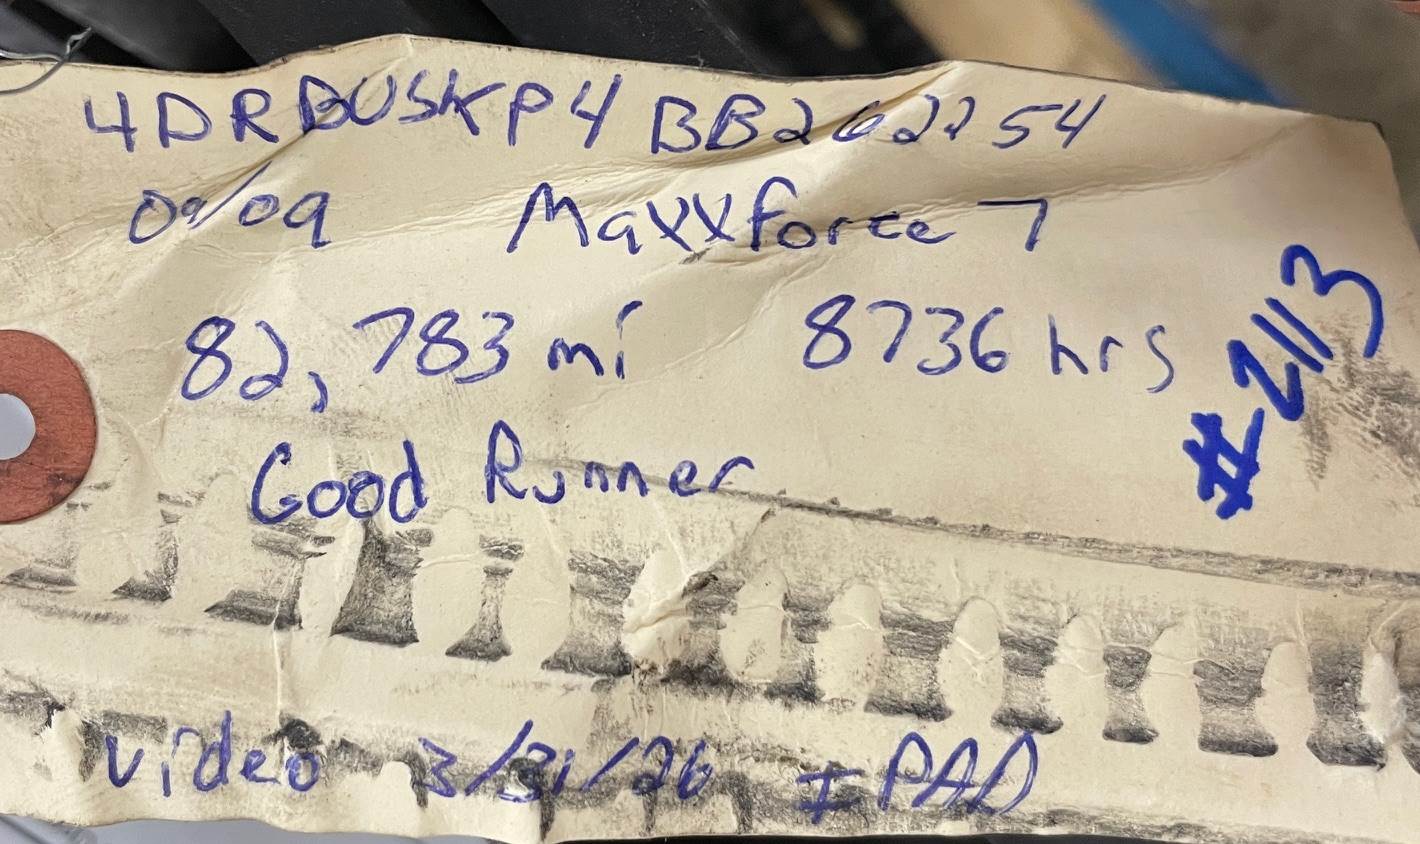 4DRBUSKP4 BB262254
09/09 Maxxforce 7
82,783 mi 8736 hrs
#2113
Good Runner
video 3/31/26 IPAD